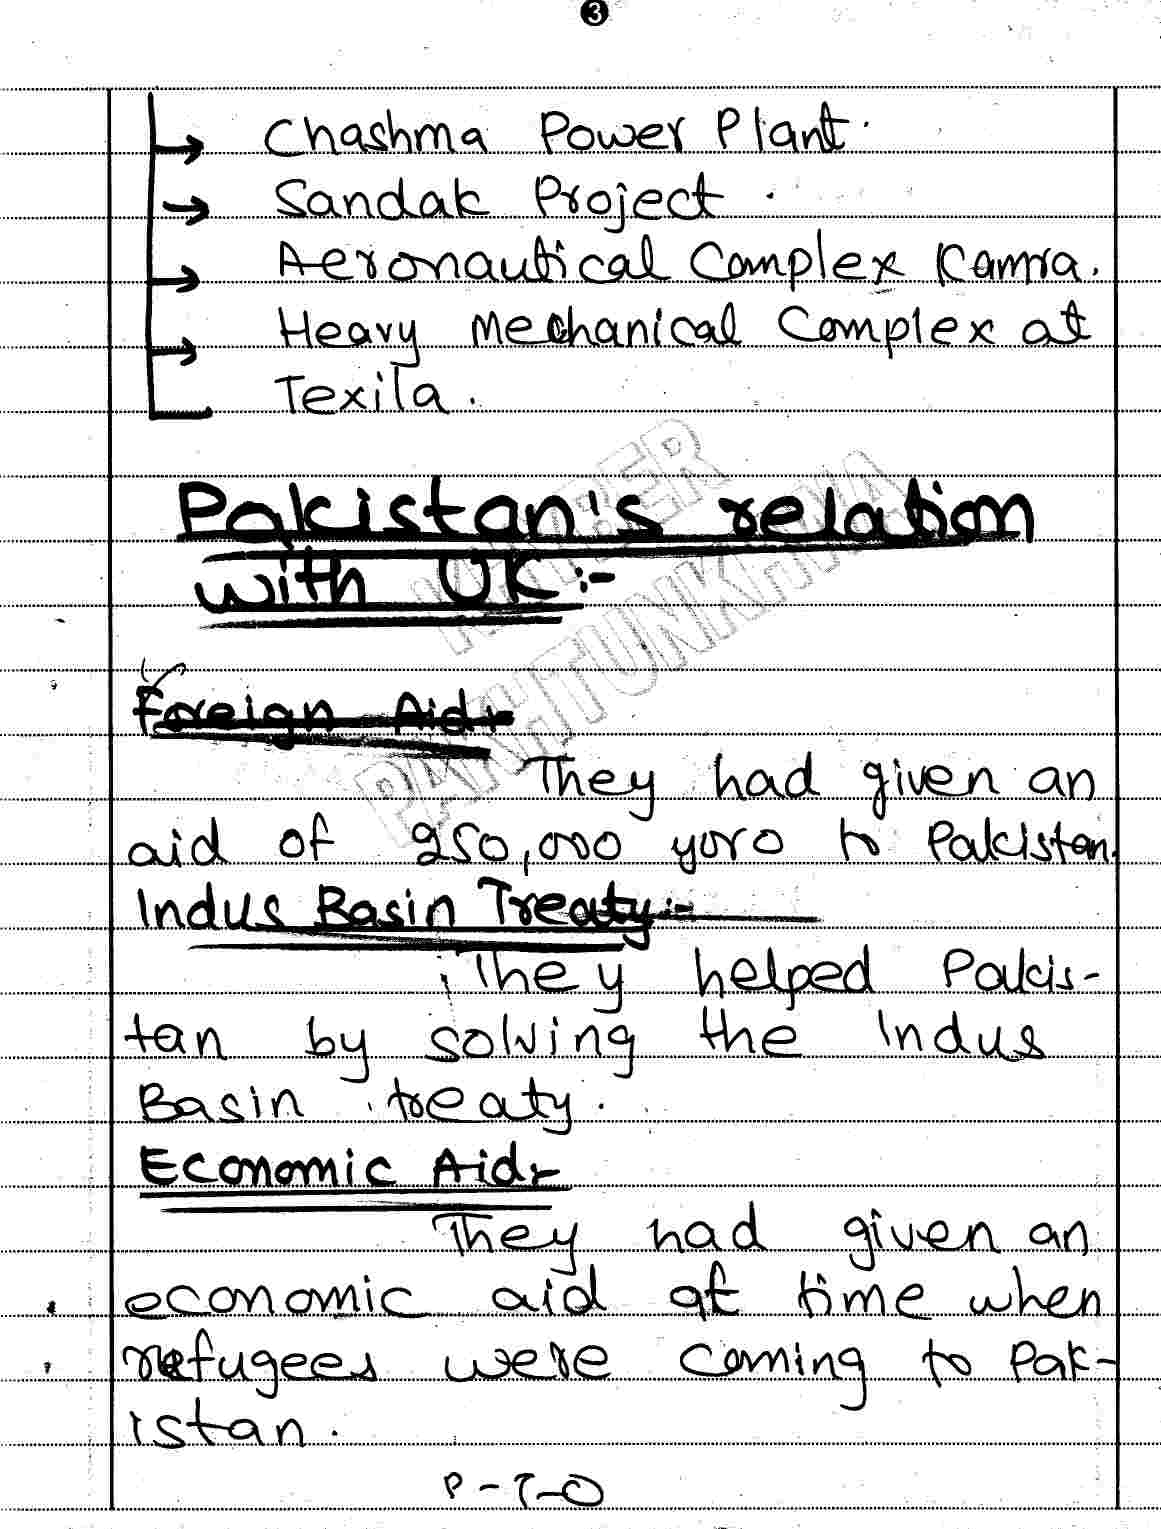 3
Chashma Power Plant.
Sandak Project.
Aeronautical Complex Kamra.
Heavy Mechanical Complex at
Texila.
Pakistan's relation
with UK:-
KHYBER
PAKHTUNKHWA
Foreign Aid:-
They had given an
aid of 250,000 yoro to Pakistan.
Indus Basin Treaty:-
They helped Pakis-
tan by solving the Indus
Basin treaty.
Economic Aid:-
They had given an
economic aid at time when
refugees were coming to Pak-
istan.
P-T-O